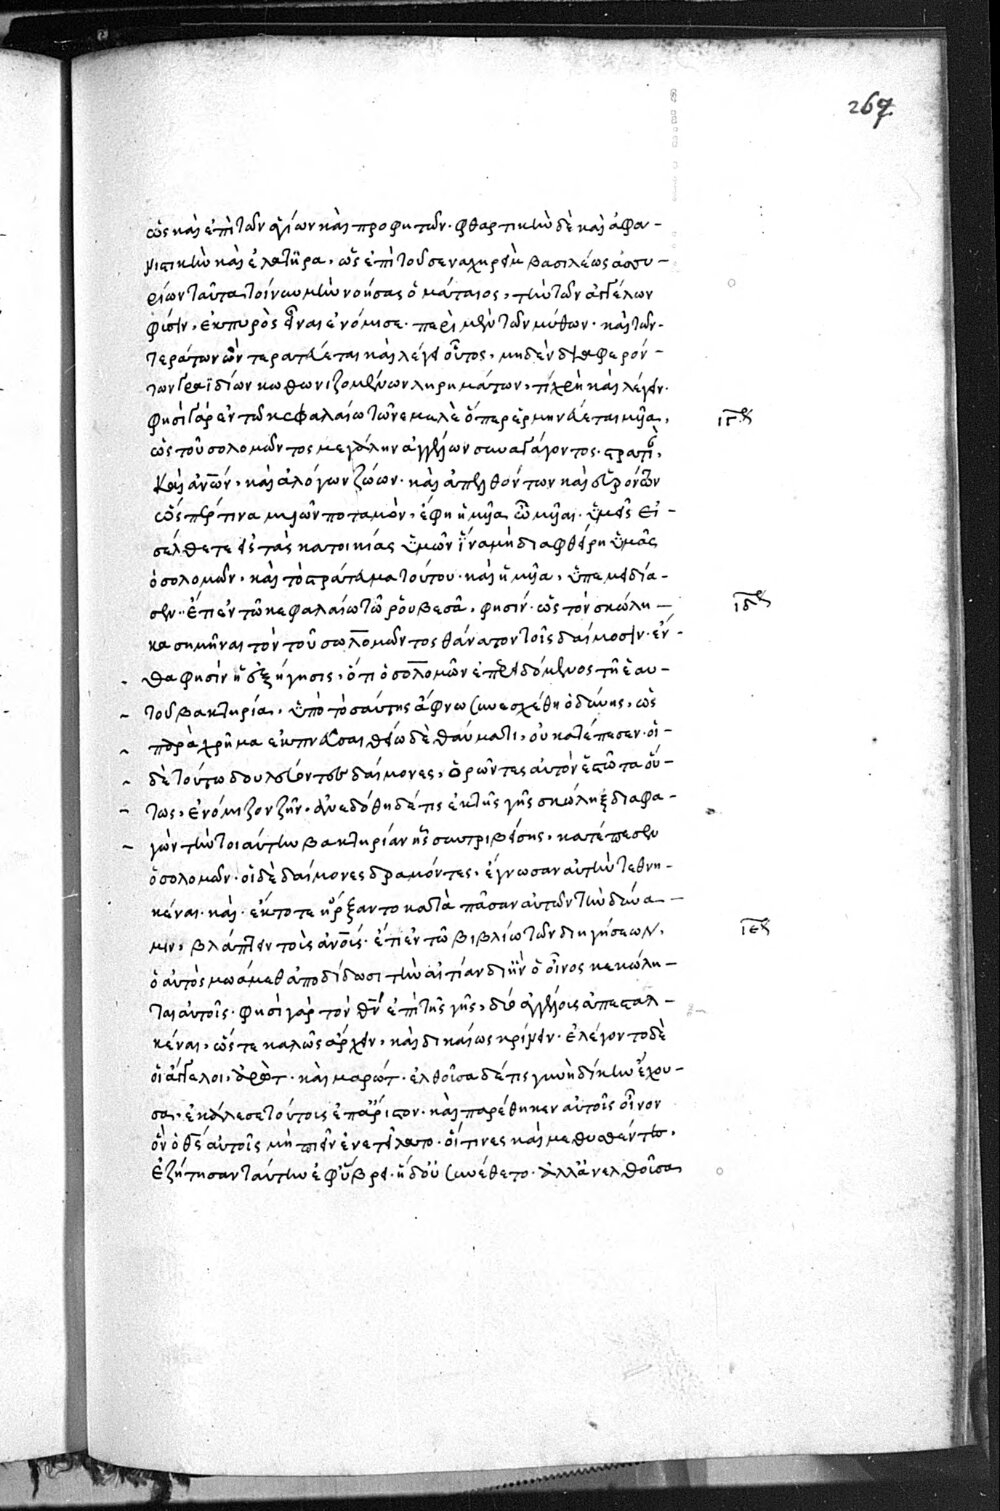 267
ὡς καὶ ἐπὶ τῶν ἁγίων καὶ προφητῶν· φθαρτικὴν δὲ καὶ ἀφα-
νιστικὴν καὶ ἐλατῆρα, ὡς ἐπὶ τοῦ σεναχηρεὶμ βασιλέως ἀσσυ-
ρίων ταῦτα τοίνυν μὴ νοήσας ὁ μάταιος, τὴν τῶν ἀγγέλων
φύσιν, ἐκ πυρὸς εἶναι ἐνόμισε· περὶ μὲν τῶν μύθων· καὶ τῶν
τεράτων ὧν τερατεύεται καὶ λέγει οὗτος, μηδὲν διαφερόν-
των γραϊδίων κωθωνιζομένων ληρημάτων, τί χρὴ καὶ λέγειν·
φησὶ γὰρ ἐν τῶ κεφαλαίω τῶ νεμαλὲ ὅπερ ἑρμηνεύεται μυῖα, ιγον
ὡς τοῦ σολομῶντος μεγάλην ἀγγέλων συναγάγοντος στρατιὰν,
καὶ ἀνῶν, καὶ ἀλόγων ζώων· καὶ ἀπελθόντων καὶ εὑρόντων
ὡς πρός τινα μυιῶν ποταμὸν, ἔφη ἡ μυῖα ὦ μυῖαι· ὑμεῖς εἰ-
σέλθετε εἰς τὰς κατοικίας ὑμῶν ἵνα μὴ διαφθείρη ὑμᾶς
ὁ σολομῶν, καὶ τὸ στράτευμα τούτου· καὶ ἡ μυῖα, ὑπεμειδία-
σεν· ἔτι ἐν τῶ κεφαλαίω τῶ ροῦβεσᾶ, φησίν· ὡς τὸν σκώλη- ιδον
κα σημῆναι τὸν τοῦ σολομῶντος θάνατον τοῖς δαίμοσιν· ἔν-
θα φησὶν ἡ ἐξήγησις, ὅτι ὁ σολομῶν ἐπερειδόμενος τῆ ἑαυ-
τοῦ βακτηρία, ὑπὸ τοσαύτης ἄφνω συνεσχέθη ὀδύνης, ὡς
παραχρῆμα ἐκπνεῦσαι θείω δὲ θαύματι, οὐ κατέπεσεν· οἱ
δὲ τούτω δουλεύοντες δαίμονες, ὁρῶντες αὐτὸν ἑστῶτα οὕ-
τως, ἐνόμιζον ζῆν· ἀνεδόθη δέ τις ἐκ τῆς γῆς σκώληξ διαφα-
γὼν τὴν τοιαύτην βακτηρίαν ἧς συντριβείσης, κατέπεσεν
ὁ σολομῶν· οἱ δὲ δαίμονες δραμόντες, ἔγνωσαν αὐτὸν τεθνη-
κέναι· καὶ· ἔκτοτε ἤρξαντο κατὰ πᾶσαν αὐτῶν τὴν δύνα-
μιν, βλάπτειν τοὺς ἀνοις· ἔτι ἐν τῶ βιβλίω τῶν διηγήσεων, ιεον
ὁ αὐτὸς μωάμεθ ἀποδίδωσι τὴν αἰτίαν δι ἣν ὁ οἶνος κεκώλυ-
ται αὐτοῖς· φησὶ γὰρ τὸν θν ἐπὶ τῆς γῆς, δύο ἀγγέλους ἀπεσταλ-
κέναι, ὥστε καλῶς ἄρχειν, καὶ δικαίως κρίνειν· ἐλέγοντο δὲ
οἱ ἄγγελοι, ἀρὼτ· καὶ μαρώτ· ἐλθοῦσα δέ τις γυνὴ δίκην ἔχου-
σα, ἐκάλεσε τούτοις ἐπ ἄριστον· καὶ παρέθηκεν αὐτοῖς οἶνον
ὃν ὁ θς αὐτοῖς μὴ πιεῖν ἐνετείλατο· οἵτινες καὶ μεθυσθέντες,
ἐζήτησαν ταύτην ἐφ ὕβρει· ἡ δ οὐ συνέθετο· ἀλλ ἀνελθοῦσα